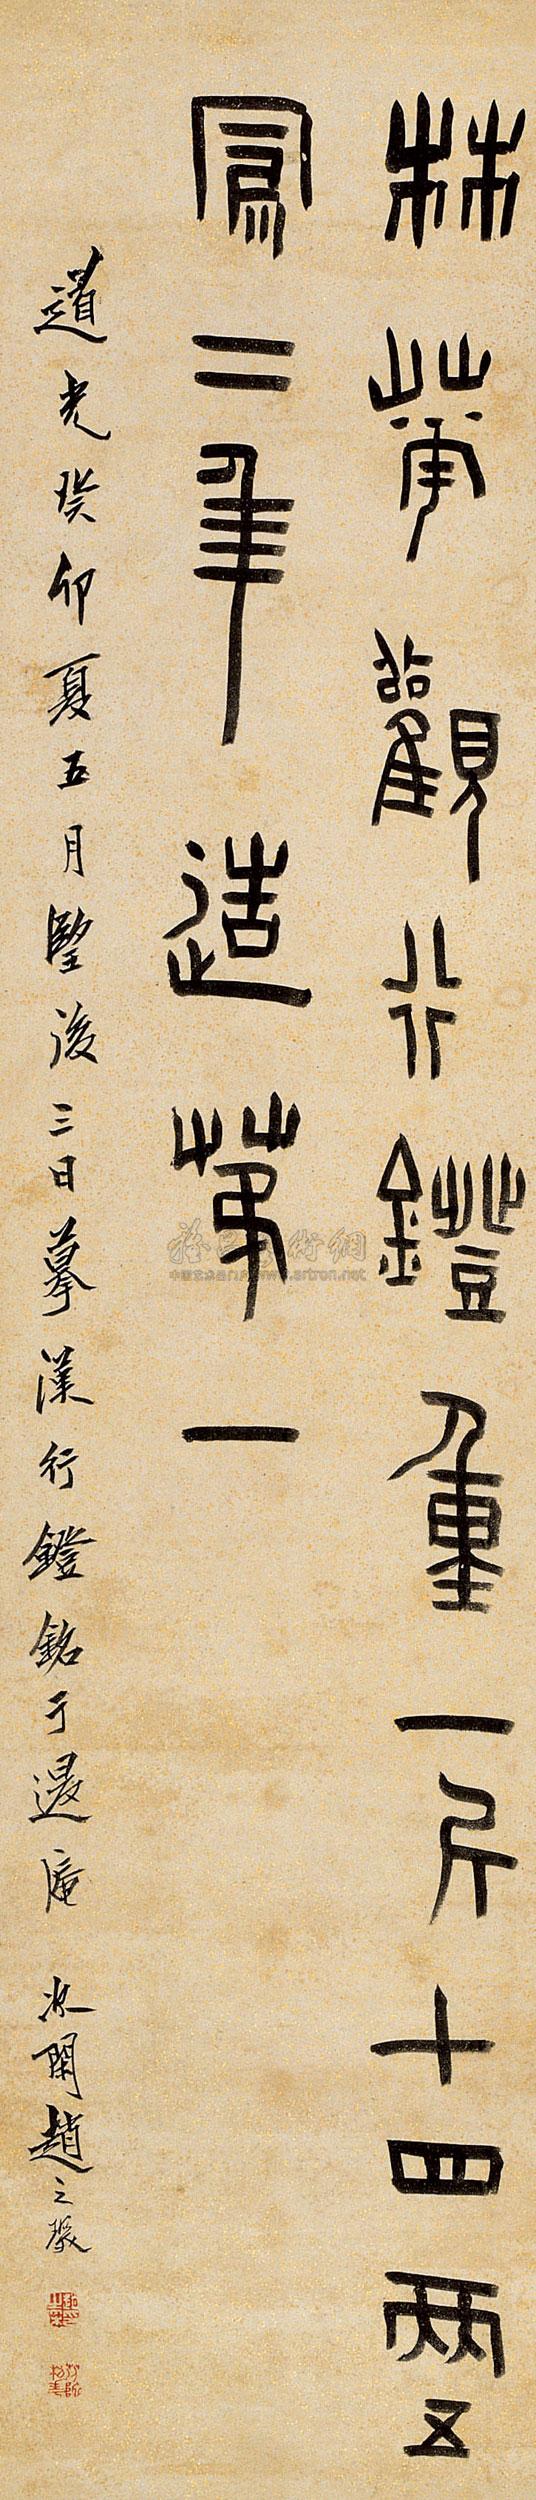 林華觀行鐙重一斤十四兩五
鳳二年造第一
道光癸卯夏五月朢後三日摹漢行鐙銘于退庵 次閑趙之琛
雅昌藝術網